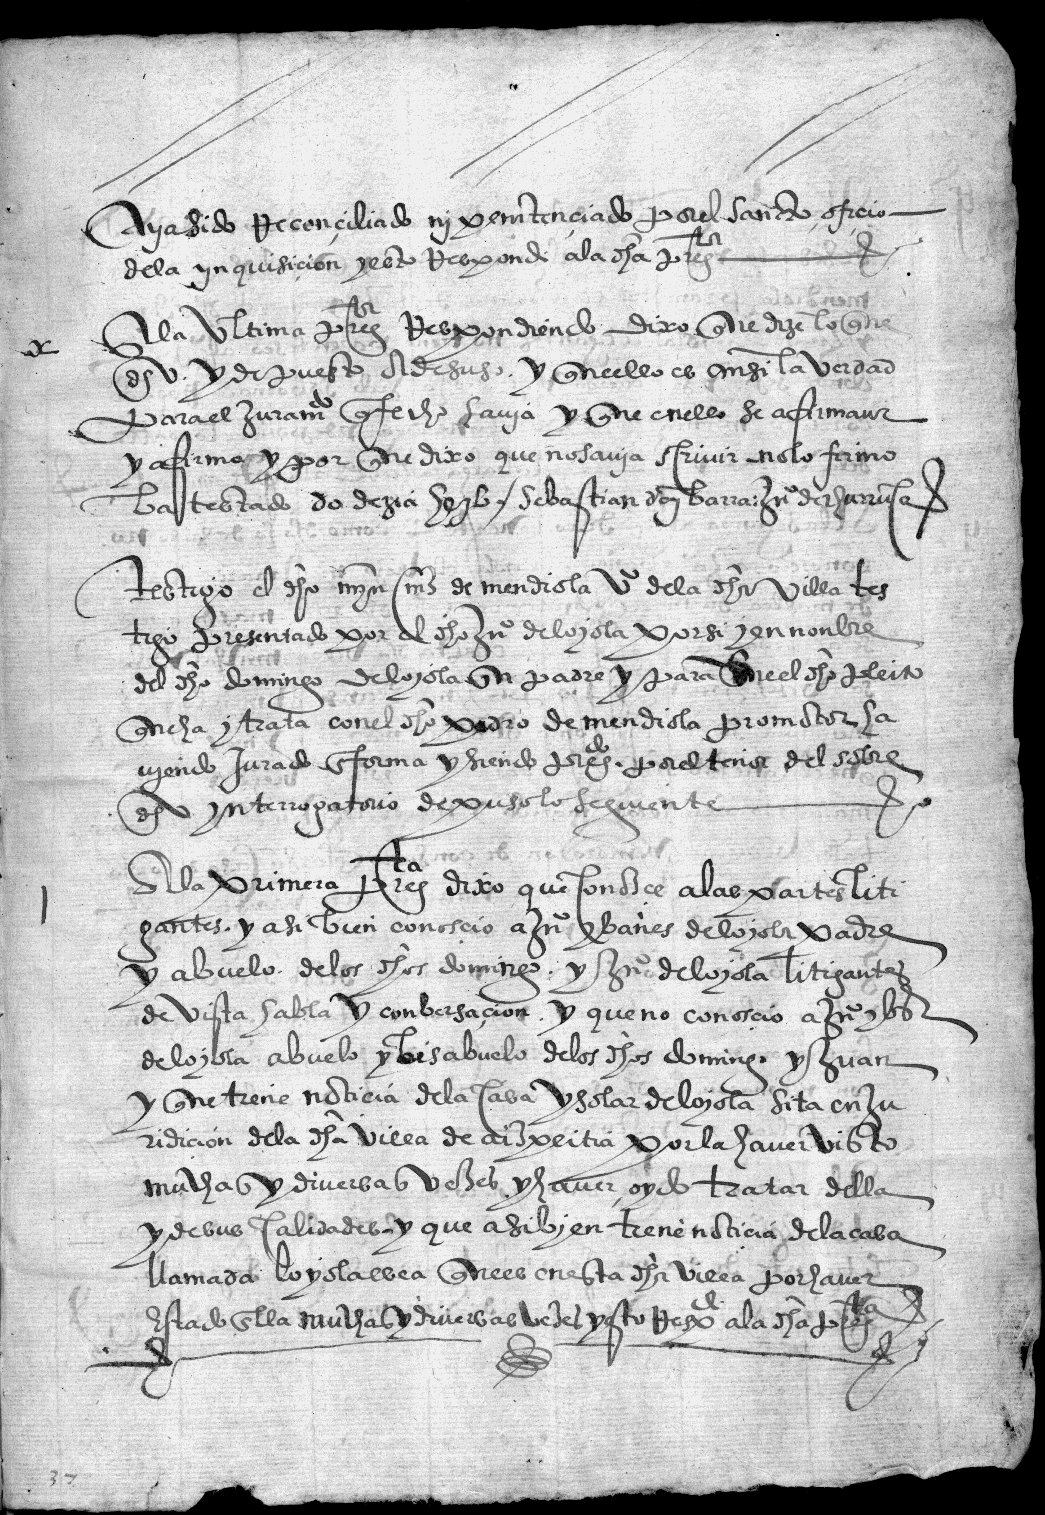 aya sido Reconçiliado ni penitençiado por el sancto ofiçio
dela ynquisiçion y esto Respondi ala dha pregta
x
Ala Ultima pregta Respondiendo dixo que dize lo que
dho y depuesto a de suso y que ello es ansi la verdad
para el Juramdo q fecho havia y que en ello se afirmava
y afirmo y por que dixo que no savia scrivir no lo firmo
ba testado do dezia Sebastian de Juo de
testigo el dho myn mrs de mendiola vº dela dha villa tes
tigo presentado por el dho Juº de loyola por si y en nonbre
del dho domingo de loyola su padre y para en el dho pleito
que ha y trata con el dho pedro de mendiola promotor ha
viendo Jurado en forma y siendo pregdo por el tenor del sobre
dho ynterrogatorio depuso lo seguiente
1
Ala primera pregta dixo que conosce alas partes liti
gantes y asi bien conosçio a Juº ybañes de loyola padre
y abuelo de los dhos domingo y Juº de loyola litigantes
de vista habla y conbersaçion y que no conosçio a Juº
de loyola abuelo y bisabuelo delos dhos domingo y Juan
y que tiene notiçia dela casa y solar de loyola sita en Ju
ridiçion dela dha villa de aizpeitia por la haver visto
muchas y diversas vezes y haver oydo tratar della
y de sus calidades y que asi bien tiene notiçia dela casa
llamada loyola que es en esta dha villa por haver
estado en ella muchas y diversas vezes y esto Respdi ala dha pregta
37